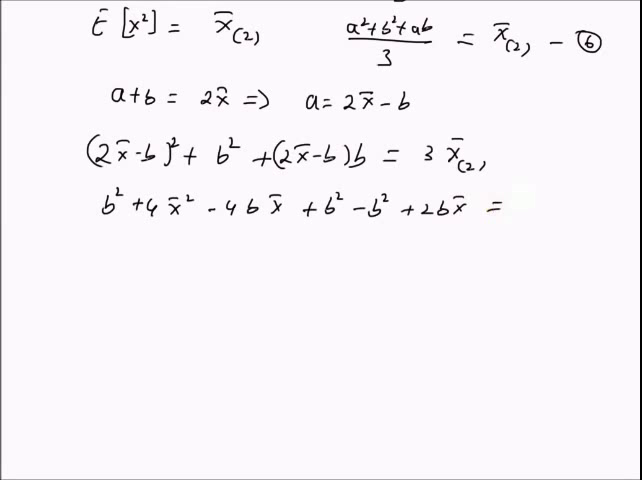 E[x²] = x̄₍₂₎   (a²+b²+ab)/3 = x̄₍₂₎ - ⑥
a+b = 2x̄ => a = 2x̄ - b
(2x̄-b)² + b² + (2x̄-b)b = 3 x̄₍₂₎
b² + 4x̄² - 4bx̄ + b² - b² + 2bx̄ =